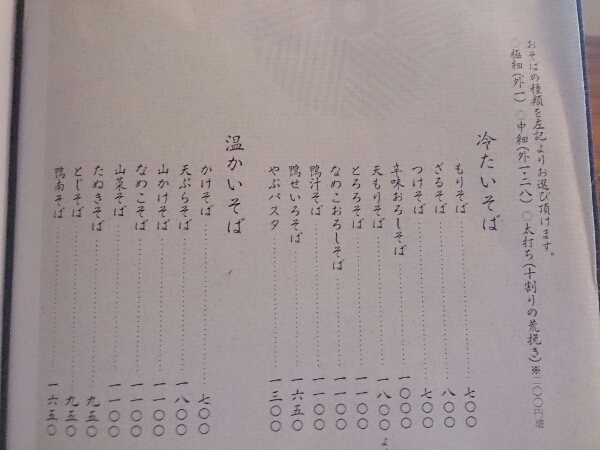 おそばの種類を左記よりお選び頂けます。
○極細(外一) ○中細(外一・二八) ○太打ち(十割りの荒挽き)※二〇〇円増
冷たいそば
もりそば 七〇〇
ざるそば 八〇〇
つけそば 七〇〇
辛味おろしそば 一〇〇〇
天もりそば 一八〇〇よ
とろろそば 一一〇〇
なめこおろしそば 一一〇〇
鴨汁そば 一一〇〇
鴨せいろそば 一六五〇
やぶパスタ 一三〇〇
温かいそば
かけそば 七〇〇
天ぷらそば 一八〇〇
山かけそば 一一〇〇
なめこそば 一一〇〇
山菜そば 一一〇〇
たぬきそば 九五〇
とじそば 九五〇
鴨南そば 一六五〇